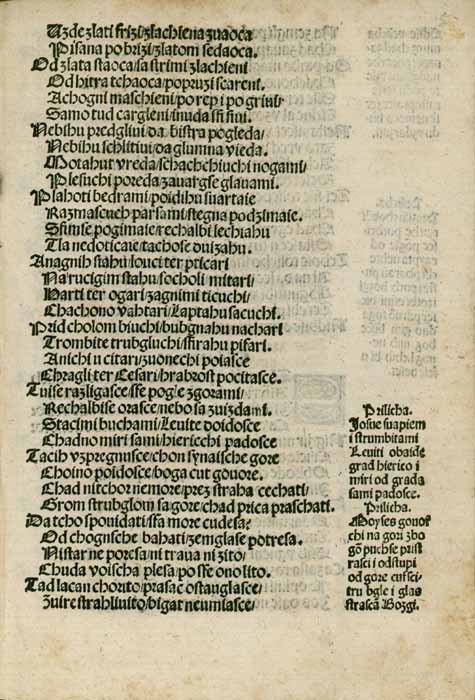 Uzde zlati frizi/zlachiena zuaoca
Pisana po brizi/zlatom sedaoca.
Od zlata staoca/sa strimi zlachieni
Od hitra tchaoca/popruzi scareni.
A chogni maschieni/po rep i po grivi/
Samo tud cargleni/inuda ssi sini.
Nebihu predglivi/da bistra pogleda/
Nebihu schlitivi/da glumna vieda.
Motahut vreda/schachchiuchi nogami/
Plesuchi poreda/zauargse glauami.
Plahoti bedrami/poidihu suartaie
Razmascuch parsami/stegna podzimaie.
Sfinise pogimaie/rechalbi lechiahu
Tla nedoticaie/tachose duizahu.
Anagnih stahu/louci ter pticari
Na rucigim stahu/socholi mitari/
Harti ter ogari/zagnimi ticuchi/
Chachono vahtari/Laptahu sacuchi.
Prid cholom biuchi/bubgnahu nachari
Trombite trubgluchi/sfirahu pifari.
A nichi u citari/zuonechi poiasce
Chragli ter Cesari/hrabrost pocitasce.
Tuise razligasce/sse pogle zgorami/
Rechalbise orasce/nebo sa zuizdami.
Stacini buchami/Leuite doidosce
Chadno miri sami/hiericchi padosce
Tacih vzpregnusce/chon synaische gore
Choino poidosce/boga cut gouore.
Chad nitchor nemore/prez straha cechati/
Grom strubglom sa gore/chad prica praschati.
Da tcho spouidati/sfa more cudesa?
Od chognsche bahati/zemglase potresa.
Nistar ne poresa/ni trava ni zito/
Chuda voischa plesa/po sse ono lito.
Tad lacan chorito/prasac ostauglasce/
Zuire strahliuito/bigat neumiasce/
Prilicha.
Josue suapiem
i strumbitami
Leuiti obaide
grad hierico i
miri od grada
sami padosce.
Prilicha.
Moyses gouor
chi na gori zbo
gom puchse prist
rasci i odstupi
od gore cussci-
tru bgle i glas
strascan Bozgi.